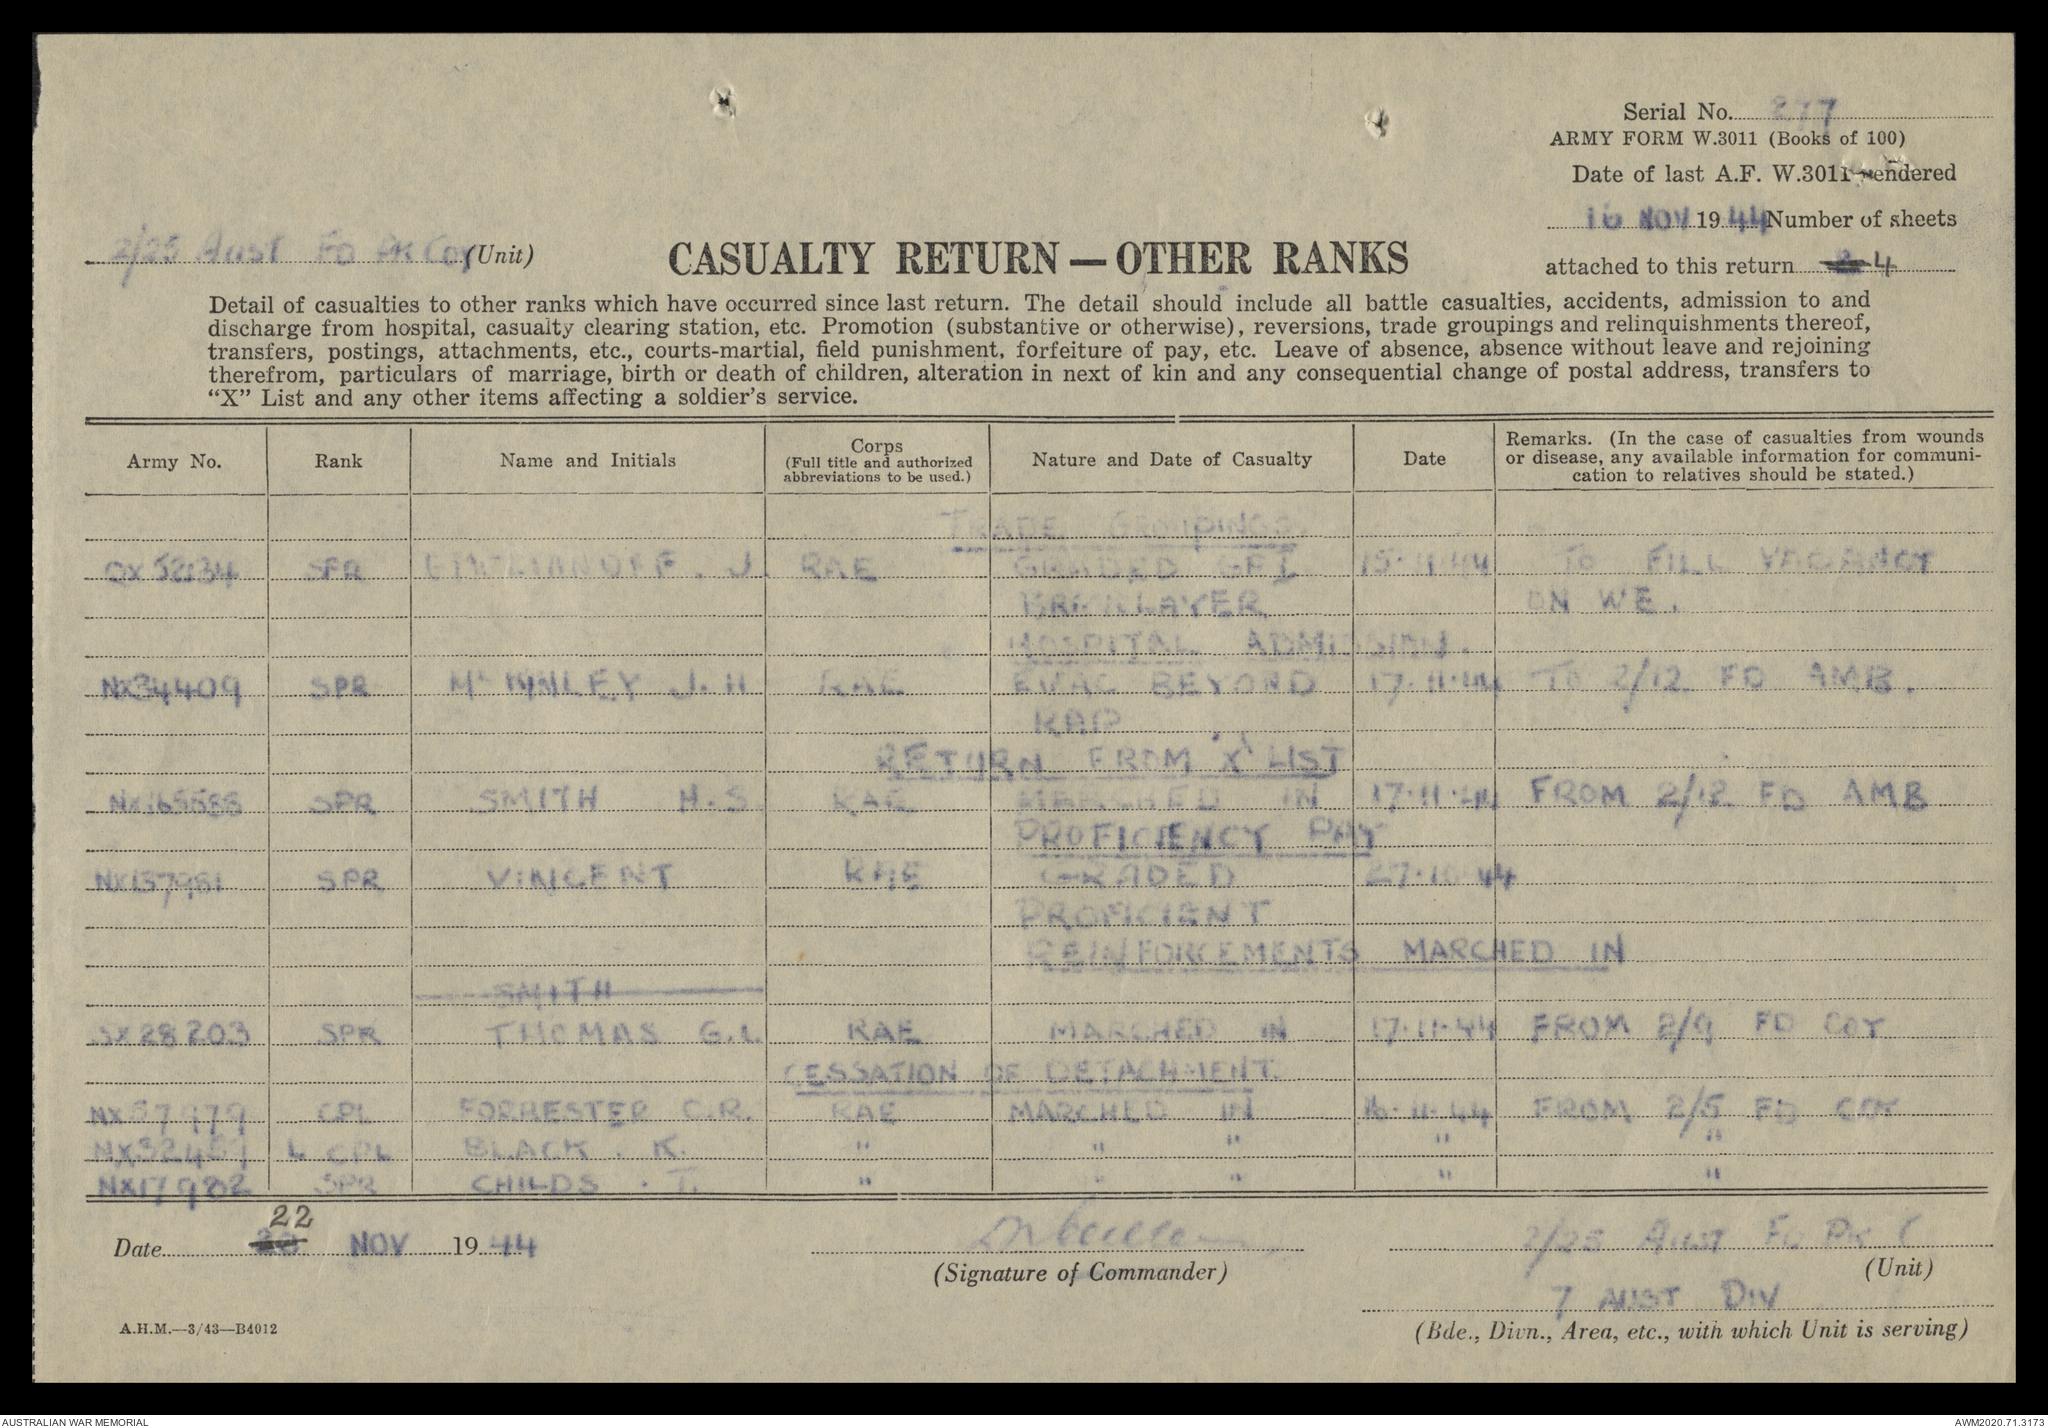 Serial No. 277
ARMY FORM W.3011 (Books of 100)
Date of last A.F. W.3011 rendered
16 NOV 1944 Number of sheets
attached to this return 4
2/25 Aust FD PK COY (Unit)
CASUALTY RETURN — OTHER RANKS
Detail of casualties to other ranks which have occurred since last return. The detail should include all battle casualties, accidents, admission to and
discharge from hospital, casualty clearing station, etc. Promotion (substantive or otherwise), reversions, trade groupings and relinquishments thereof,
transfers, postings, attachments, etc., courts-martial, field punishment, forfeiture of pay, etc. Leave of absence, absence without leave and rejoining
therefrom, particulars of marriage, birth or death of children, alteration in next of kin and any consequential change of postal address, transfers to
"X" List and any other items affecting a soldier's service.
Army No. Rank Name and Initials Corps (Full title and authorized abbreviations to be used.) Nature and Date of Casualty Date Remarks. (In the case of casualties from wounds or disease, any available information for communication to relatives should be stated.)
TRADE GROUPINGS
SPR J. RAE GRADED GP I 15.11.44 TO FILL VACANCY
BRICKLAYER ON WE.
HOSPITAL ADMISSION.
NX34409 SPR McKINLEY J.H RAE EVAC BEYOND 17.11.44 TO 2/12 FD AMB.
RAP
RETURN FROM 'X' LIST
NX165585 SPR SMITH H.S. RAE MARCHED IN 17.11.44 FROM 2/12 FD AMB
PROFICIENCY PAY
NX137951 SPR VINCENT RAE GRADED 27.10.44
PROFICIENT
REINFORCEMENTS MARCHED IN
SMITH
SX28203 SPR THOMAS G.L. RAE MARCHED IN 17.11.44 FROM 2/9 FD COY
CESSATION OF DETACHMENT.
NX57979 CPL FORRESTER C.R. RAE MARCHED IN 16.11.44 FROM 2/5 FD COY
NX32451 L CPL BLACK . K. " " " " "
NX17982 SPR CHILDS . T. " " " " "
Date 22 NOV 1944
(Signature of Commander)
2/25 Aust FD PK C
(Unit)
7 AUST DIV
(Bde., Divn., Area, etc., with which Unit is serving)
A.H.M.—3/43—B4012
AUSTRALIAN WAR MEMORIAL
AWM2020.71.3173